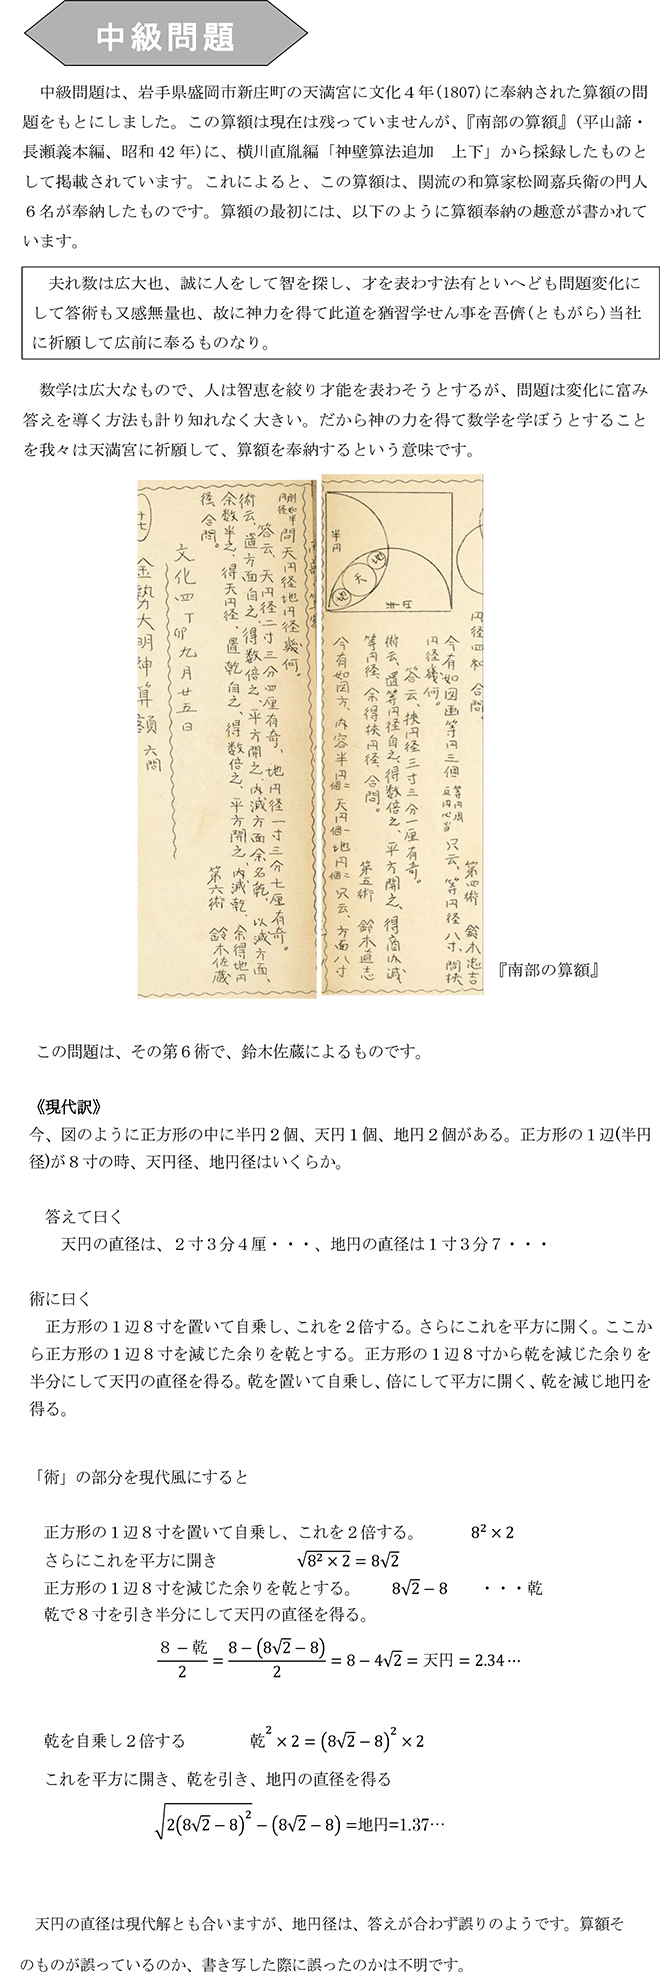 中級問題
中級問題は、岩手県盛岡市新庄町の天満宮に文化４年(1807)に奉納された算額の問
題をもとにしました。この算額は現在は残っていませんが、『南部の算額』（平山諦・
長瀬義本編、昭和 42 年)に、横川直胤編「神壁算法追加　上下」から採録したものと
して掲載されています。これによると、この算額は、関流の和算家松岡嘉兵衛の門人
６名が奉納したものです。算額の最初には、以下のように算額奉納の趣意が書かれて
います。
夫れ数は広大也、誠に人をして智を探し、才を表わす法有といへども問題変化に
して答術も又感無量也、故に神力を得て此道を猶習学せん事を吾儕(ともがら)当社
に祈願して広前に奉るものなり。
数学は広大なもので、人は智恵を絞り才能を表わそうとするが、問題は変化に富み
答えを導く方法も計り知れなく大きい。だから神の力を得て数学を学ぼうとすること
を我々は天満宮に祈願して、算額を奉納するという意味です。
半円
地
天
地
円径四和 合問。
第四術　鈴木忠吉
今有如図画等円三個 只云、等円径八寸、問挟
円径幾何。
答云、挟円径三寸三分一厘有奇。
術云、置等円径自之、得数倍之、平方開之、得商内減
等円径、余得挟円径、合問。
第五術　鈴木直志
今有如図方、内容半円二個 天円一個 地円二個 只云、方面八寸
問天円径地円径幾何。
答云、天円径二寸三分四厘有奇、地円径一寸三分七厘有奇。
術云、置方面自之、得数倍之、平方開之、内減方面余名乾、以減方面、
余数半之、得天円径、置乾自之、得数倍之、平方開之、内減乾、余得地円
径、合問。
第六術　鈴木佐蔵
文化四丁卯九月廿五日
十七
金勢大明神算額 六問
『南部の算額』
この問題は、その第６術で、鈴木佐蔵によるものです。
《現代訳》
今、図のように正方形の中に半円２個、天円１個、地円２個がある。正方形の１辺(半円
径)が８寸の時、天円径、地円径はいくらか。
答えて曰く
天円の直径は、２寸３分４厘・・・、地円の直径は１寸３分７・・・
術に曰く
正方形の１辺８寸を置いて自乗し、これを２倍する。さらにこれを平方に開く。ここか
ら正方形の１辺８寸を減じた余りを乾とする。正方形の１辺８寸から乾を減じた余りを
半分にして天円の直径を得る。乾を置いて自乗し、倍にして平方に開く、乾を減じ地円を
得る。
「術」の部分を現代風にすると
正方形の１辺８寸を置いて自乗し、これを２倍する。　8² × 2
さらにこれを平方に開き　√(8² × 2) = 8√2
正方形の１辺８寸を減じた余りを乾とする。　8√2 − 8　・・・乾
乾で８寸を引き半分にして天円の直径を得る。
(８ − 乾)/2 = (8 − (8√2 − 8))/2 = 8 − 4√2 = 天円 = 2.34 ⋯
乾を自乗し２倍する　乾² × 2 = (8√2 − 8)² × 2
これを平方に開き、乾を引き、地円の直径を得る
√(2(8√2 − 8)²) − (8√2 − 8) =地円=1.37⋯
天円の直径は現代解とも合いますが、地円径は、答えが合わず誤りのようです。算額そ
のものが誤っているのか、書き写した際に誤ったのかは不明です。